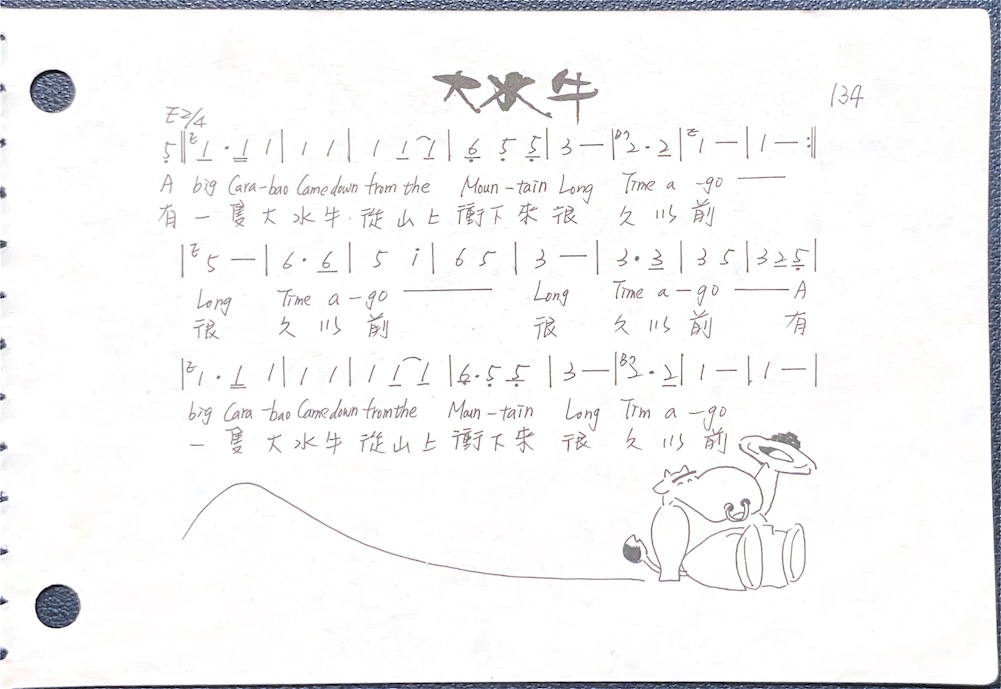 大水牛
134
E 2/4
5‖E 1 · 1 1 | 1 1 | 1 1 1 | 6 5 5 | 3 — | B7 2 · 2 | E 1 — | 1 — :‖
A big Cara-bao Came down from the Moun-tain Long Time a -go ——
有 一 隻 大 水 牛 從 山 上 衝 下 來 很 久 以 前
| E 5 — | 6 · 6 | 5 i | 6 5 | 3 — | 3 · 3 | 3 5 | 3 2 5 |
Long Time a -go —— Long Time a -go —— A
很 久 以 前 很 久 以 前 有
| E 1 · 1 1 | 1 1 | 1 1 1 | 6 · 5 5 | 3 — | B7 2 · 2 | 1 — | 1 — |
big Cara -bao Came down from the Moun -tain Long Tim a -go
一 隻 大 水 牛 從 山 上 衝 下 來 很 久 以 前